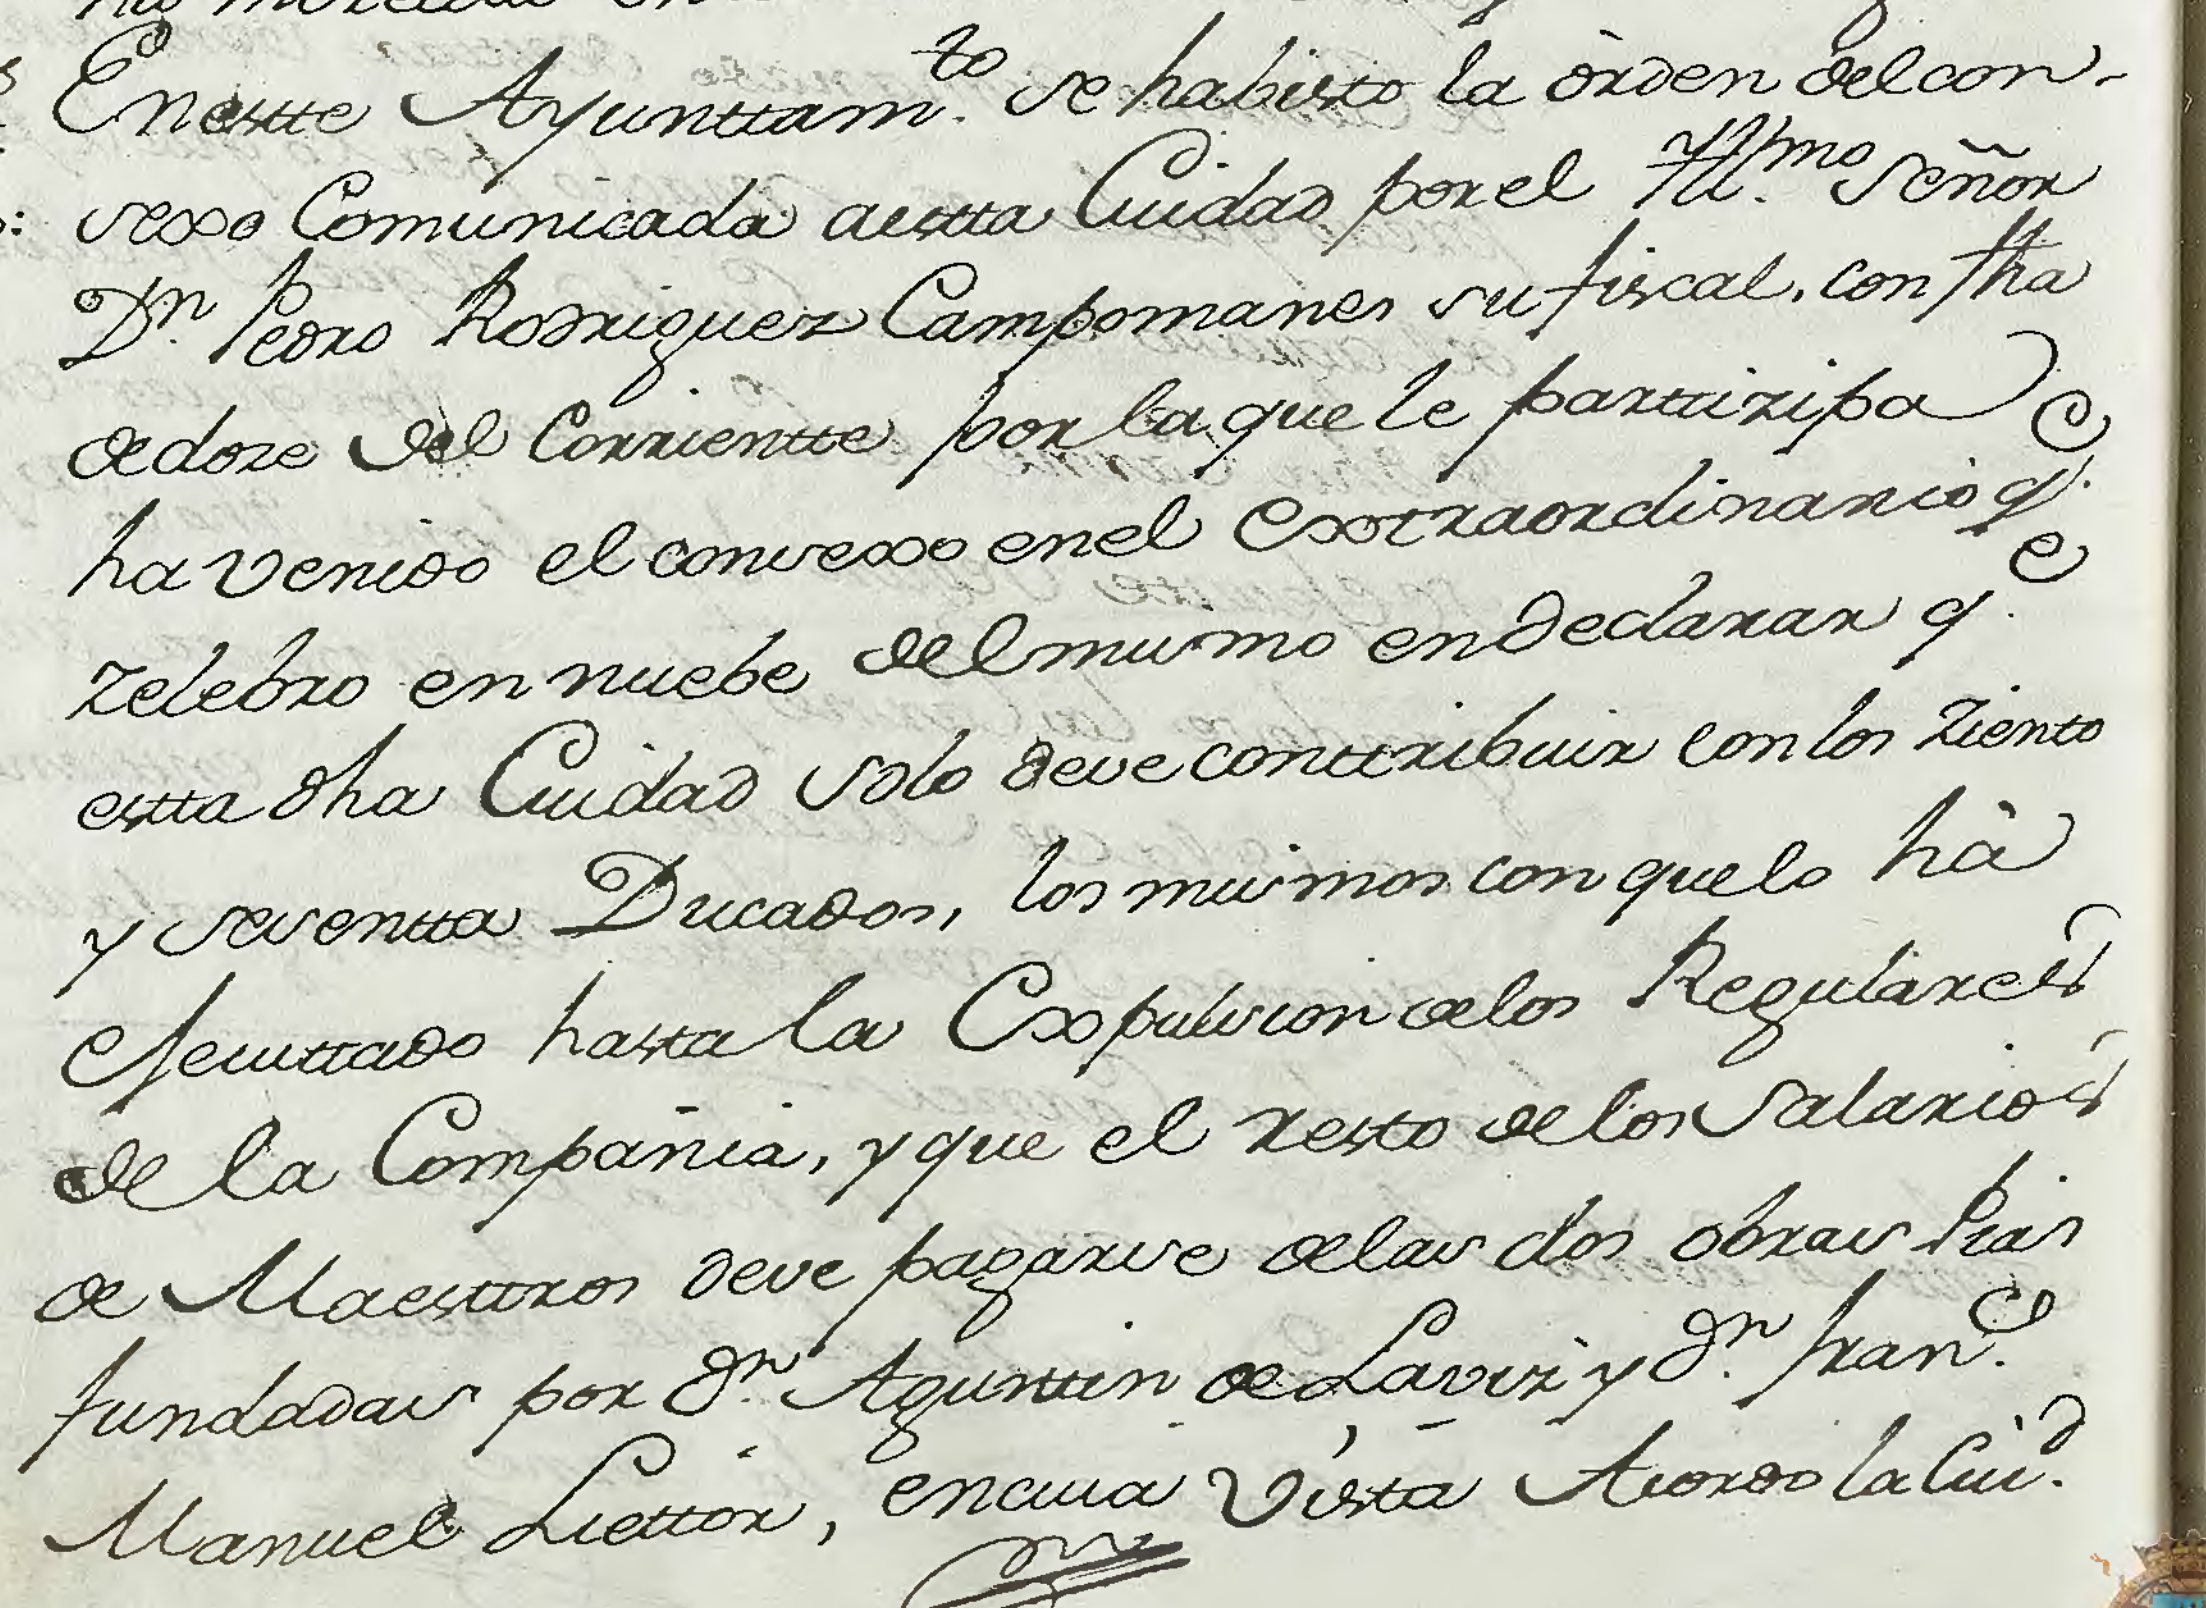 En estte Ayunttam.to se ha bisto la òrden del con-
sexo Comunicada a estta Ciudad por el Yll.mo Señor
D.n Pedro Rodriguez Campomanes su fiscal, con fha
de doze del Corriente por la que le partizipa
ha venido el consexo en el Extraordinario q.e
zelebro en nuebe del mismo en declarar q.e
estta dha Ciudad solo deve conttribuir con los ziento
y sesentta Ducados, los mismos con que lo hà
efecuttado hasta la Expulsion de los Regulares
de la Compañia, y que el resto de los Salarios
de Maesttros deve pagarse de las dos obras Pias
fundadas por d.n Agusttin de y d.n Fran.co
Manuel Liettor, en cuia Vista Acordo la Ciu.d